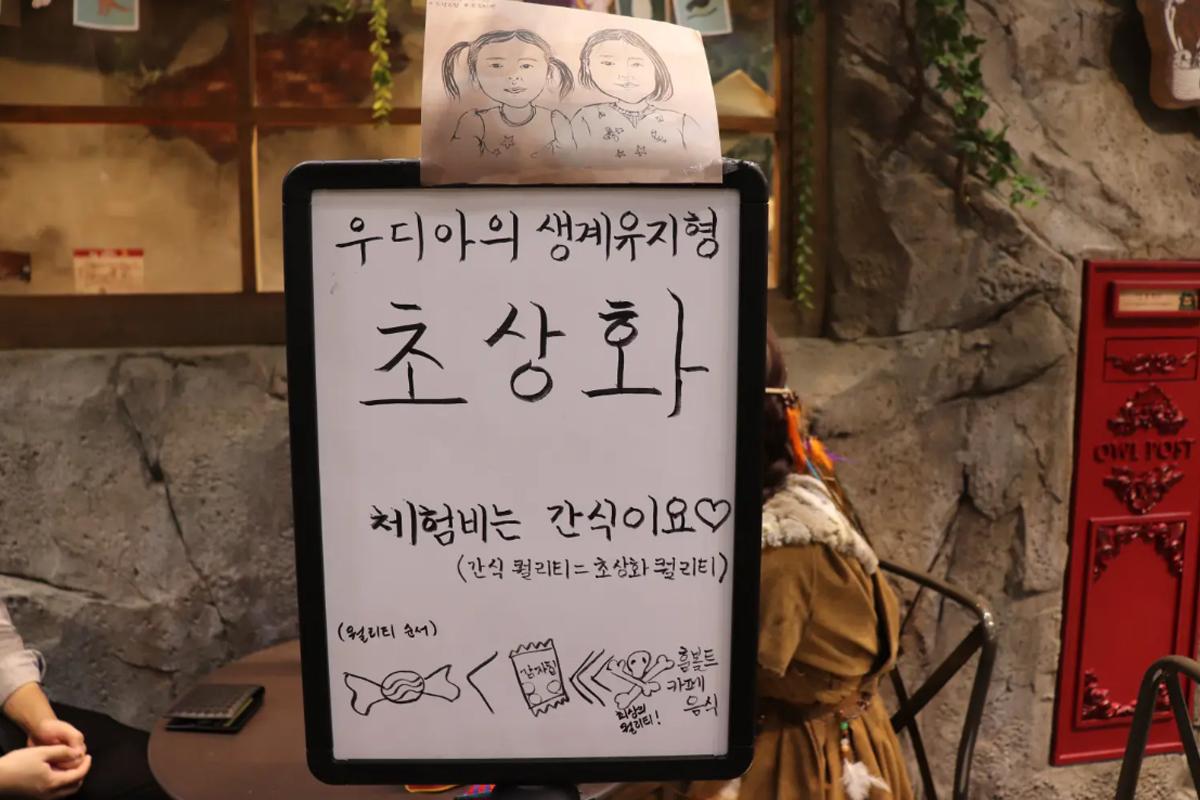 우디아의 생계유지형
초상화
체험비는 간식이요♡
(간식 퀄리티=초상화 퀄리티)
(퀄리티 순서)
감자칩
흠볼트
카페
음식
최상의
퀄리티!
OWL POST